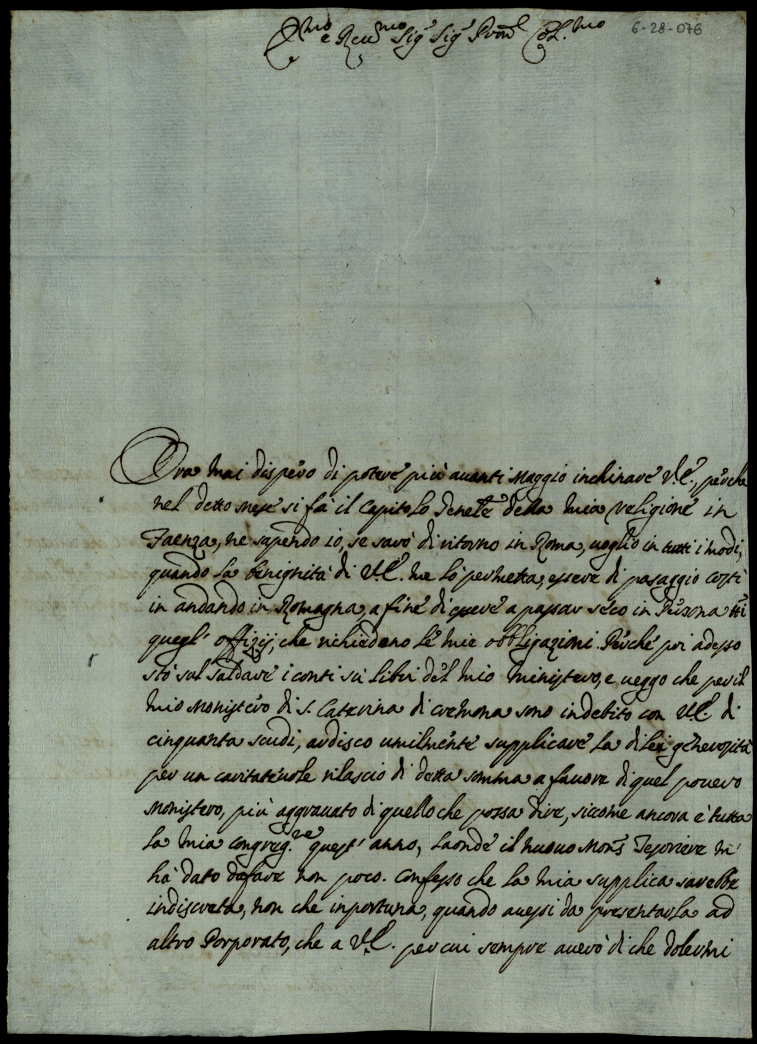 Em.mo e Rev.mo Sig.r Sig.r Pron. Col.mo
6-28-076
Ora mai dispero di potere più avanti Maggio inchinare V.E., perche
nel detto mese si fà il Capitolo Gen.le della mia religione in
Faenza, ne sapendo io, se sarò di ritorno in Roma, voglio in tutti i modi,
quando la benignità di V.E. me lo permetta, essere di passaggio costì
in andando in Romagna, a fine di a passar seco in Persona tti
quegl' offizij, che richiedono le mie obbligazioni. Perche poi adesso
stò sul saldare i conti sù libri del mio ministero, e veggo che per il
mio Monistero di S. Caterina di Cremona sono in debito con V.E. di
cinquanta scudi, ardisco umilmente supplicare la di lei generosità
per un caritatevole rilascio di detta somma a favore di quel povero
Monistero, più aggravato di quello che possa dire, sicome ancora è tutta
la mia Congreg.ne quest' anno, laonde il nuovo Mons.r Tesoriere m'
hà dato da fare non poco. Confesso che la mia supplica sarebbe
indiscreta, non che inportuna, quando avessi da presentarla ad
altro Porporato, che a V.E. per cui sempre averò di che dolermi